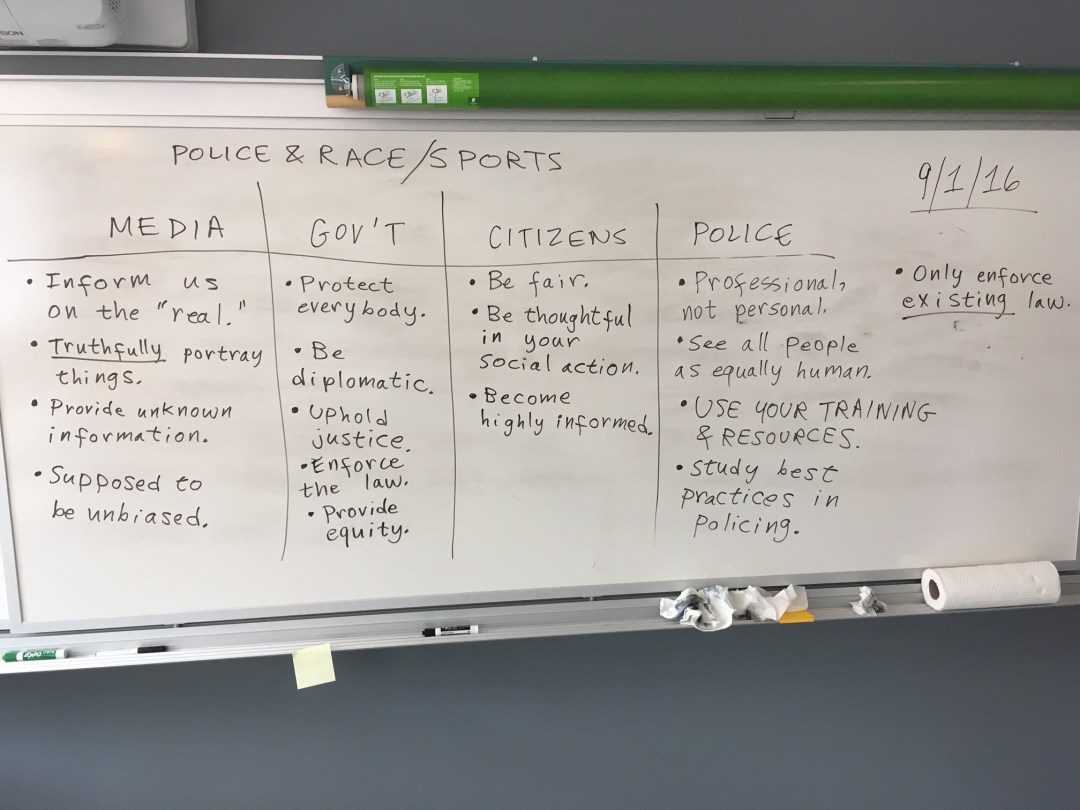 SON
POLICE & RACE/SPORTS
9/1/16
MEDIA
• Inform us
on the "real."
• Truthfully portray
things.
• Provide unknown
information.
• Supposed to
be unbiased.
GOV'T
• Protect
everybody.
• Be
diplomatic.
• Uphold
justice.
• Enforce
the law.
• Provide
equity.
CITIZENS
• Be fair.
• Be thoughtful
in your
social action.
• Become
highly informed.
POLICE
• Professional,
not personal.
• See all people
as equally human.
• USE YOUR TRAINING
& RESOURCES.
• Study best
practices in
policing.
• Only enforce
existing law.